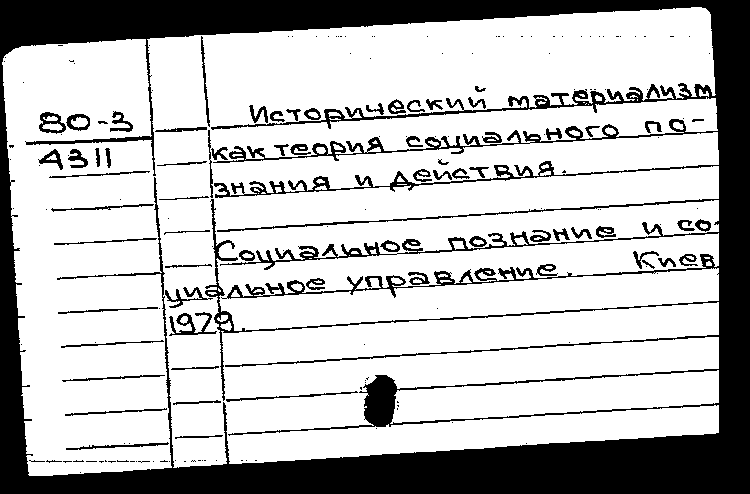 80-3
4311
Исторический материализм
как теория социального по-
знания и действия.
Социальное познание и со-
циальное управление. Киев
1979.